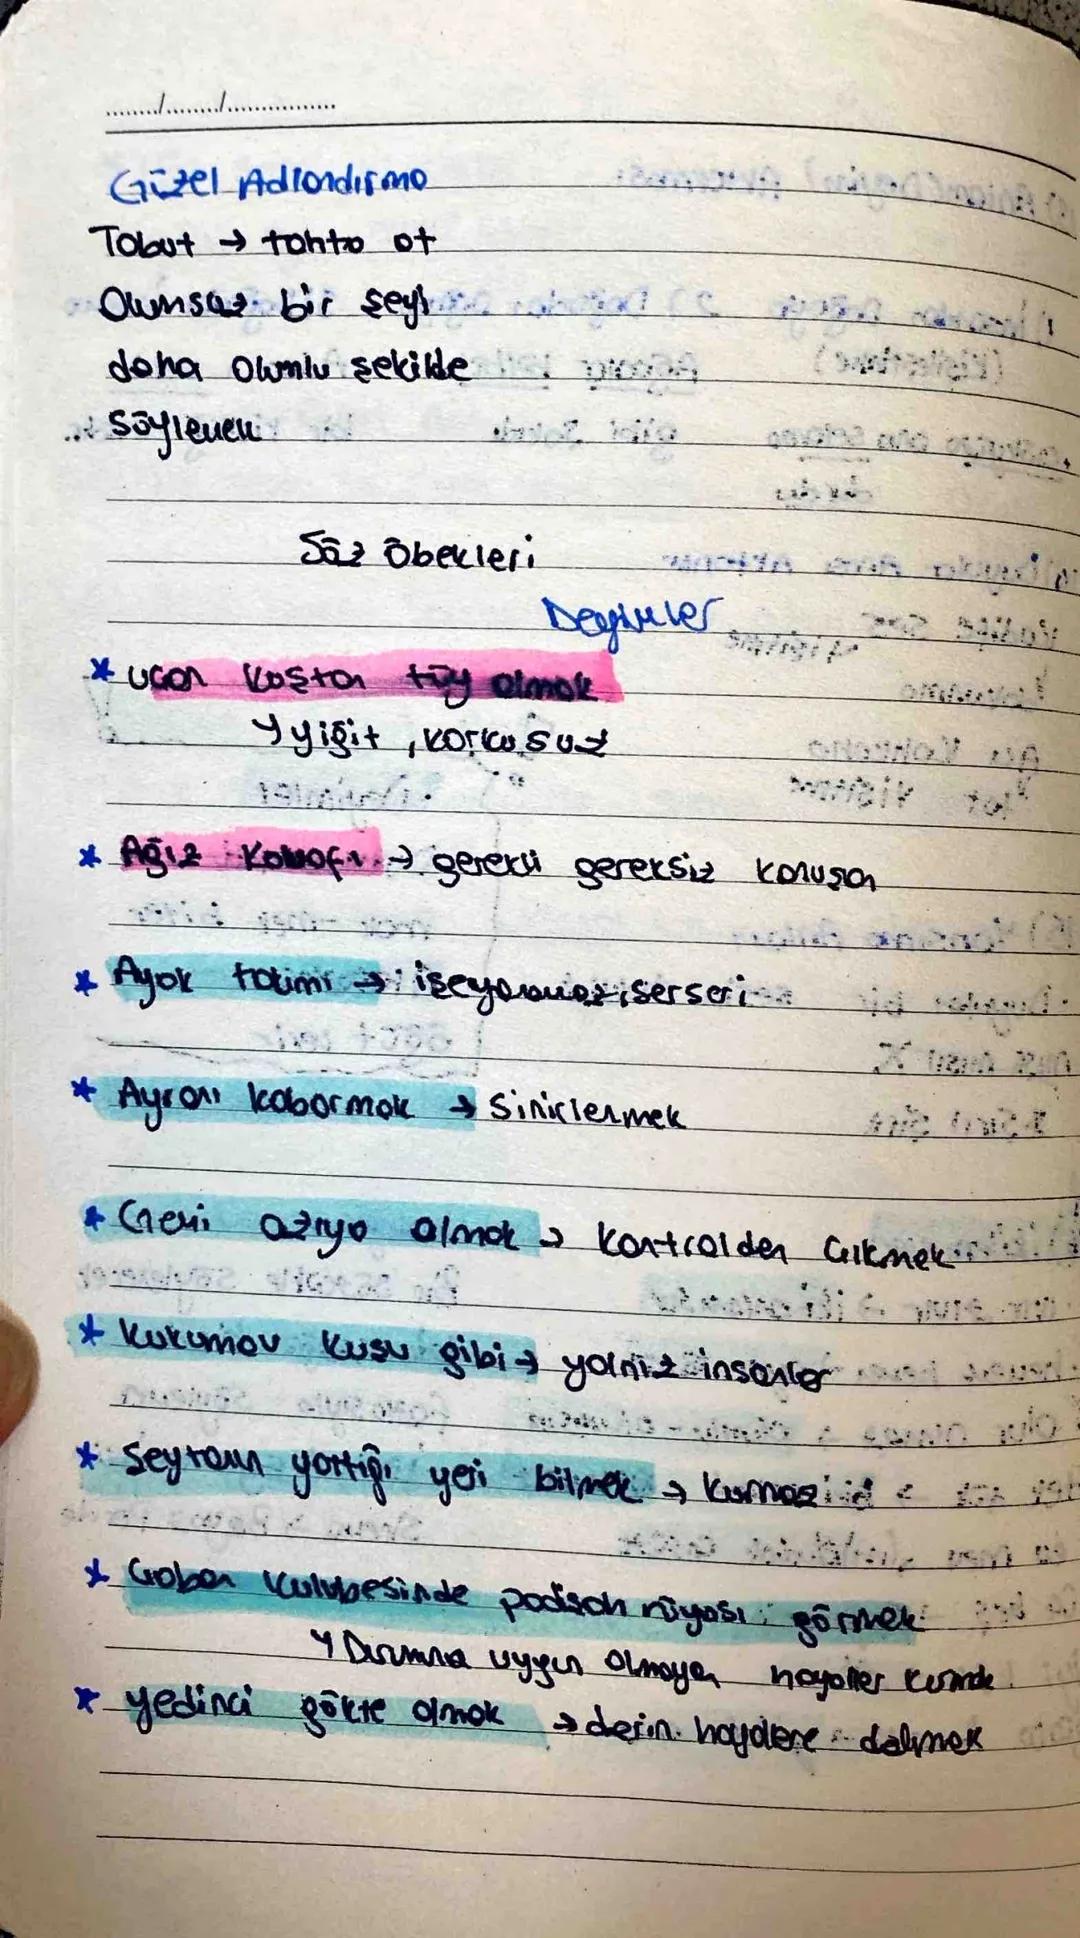 ......../......../...............
Güzel Adlandırma
Tabut → tahta at
Olumsuz bir şeyi
daha olumlu şekilde
söylenen
Söz Öbekleri
Deyimler
* uçan kuştan tüy almak
↳ yiğit, korkusuz
* Ağız kavafı → gerekli gereksiz konuşan
* Ayak takımı → işe yaramaz, serseri
* Ayranı kabarmak → sinirlenmek
* Gemi azıya almak → kontrolden çıkmak
* Kukumav kuşu gibi → yalnız insanlar
* Şeytanın yattığı yeri bilmek → kurnaz
* Çoban kulübesinde padişah rüyası görmek
↳ Durumuna uygun olmayan hayaller kurmak
* yedinci gökte olmak → derin hayallere dalmak